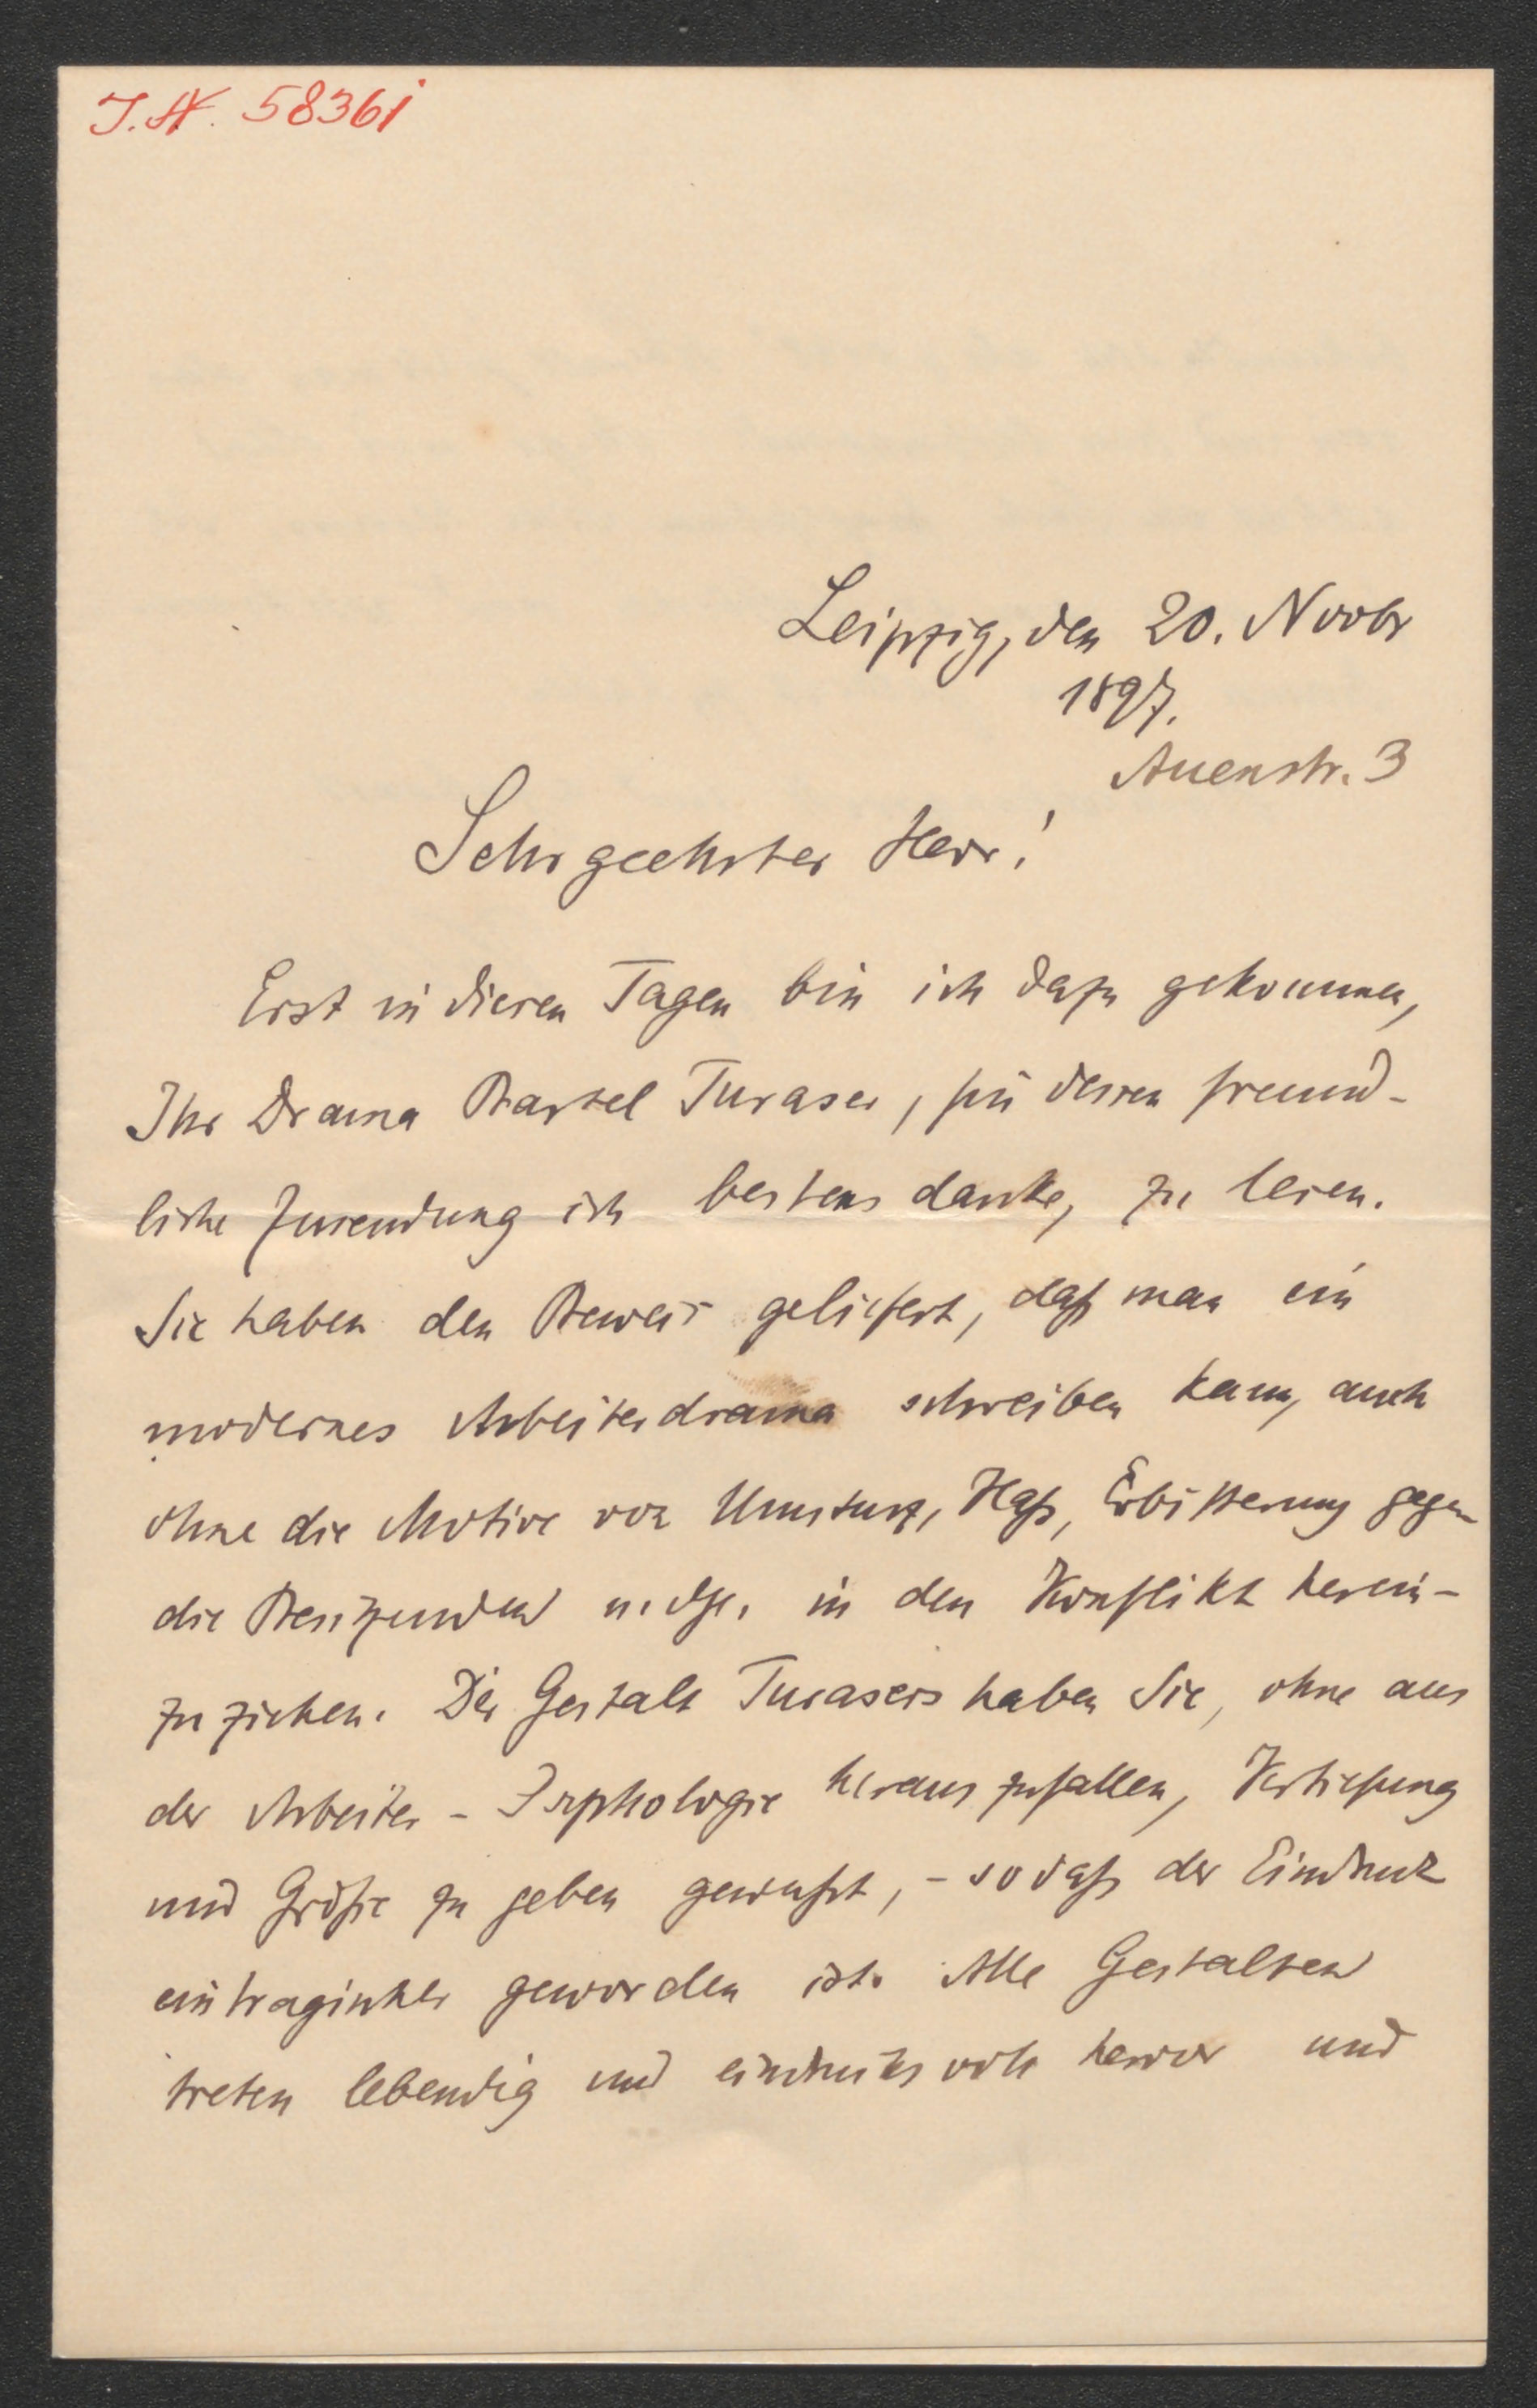 J.N. 58361
Leipzig, den 20. Novbr
1897.
Auenstr. 3
Sehr geehrter Herr!
Erst in diesen Tagen bin ich dazu gekommen,
Ihr Drama Bartel Turaser, für dessen freund-
liche Zusendung ich bestens danke, zu lesen.
Sie haben den Beweis geliefert, daß man ein
modernes Arbeiterdrama schreiben kann, auch
ohne die Motive von Umsturz, Haß, Erbitterung gegen
die Besitzenden u. dgl. in den Konflikt herein-
zuziehen. Der Gestalt Turasers haben Sie, ohne aus
der Arbeiter-Psychologie herauszufallen, Vertiefung
und Größe zu geben gewußt, – sodaß der Eindruck
ein tragischer geworden ist. Alle Gestalten
treten lebendig und eindrucksvoll hervor und